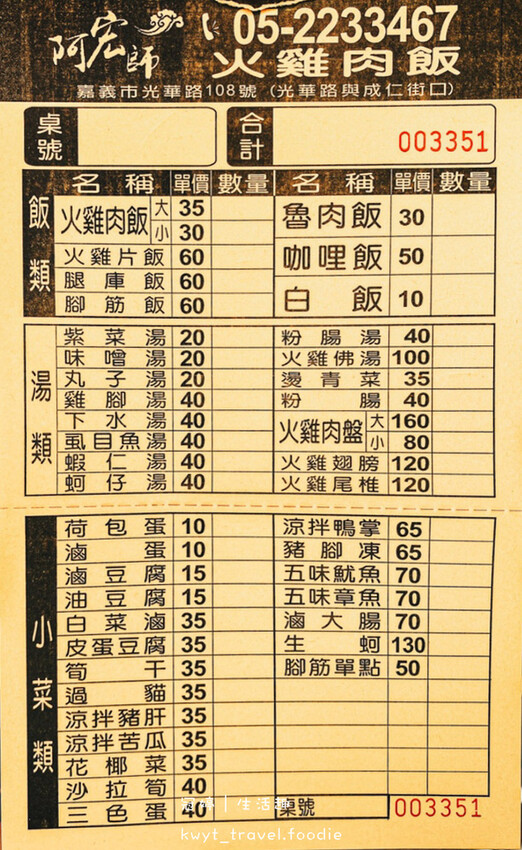 阿宏師 05-2233467
火雞肉飯
嘉義市光華路108號(光華路與成仁街口)
桌號 合計 003351
飯類
名稱 單價 數量
火雞肉飯 大 35
小 30
火雞片飯 60
腿庫飯 60
腳筋飯 60
名稱 單價 數量
魯肉飯 30
咖哩飯 50
白飯 10
湯類
紫菜湯 20
味噌湯 20
丸子湯 20
雞腳湯 40
下水湯 40
虱目魚湯 40
蝦仁湯 40
蚵仔湯 40
粉腸湯 40
火雞佛湯 100
燙青菜 35
粉腸 40
火雞肉盤 大 160
小 80
火雞翅膀 120
火雞尾椎 120
小菜類
荷包蛋 10
滷蛋 10
滷豆腐 15
油豆腐 15
白菜滷 35
皮蛋豆腐 35
筍干 35
過貓 35
涼拌豬肝 35
涼拌苦瓜 35
花椰菜 35
沙拉筍 40
三色蛋 40
涼拌鴨掌 65
豬腳凍 65
五味魷魚 70
五味章魚 70
滷大腸 70
生蚵 130
腳筋單點 50
桌號 003351
生活趣
kwyt_travel.foodie